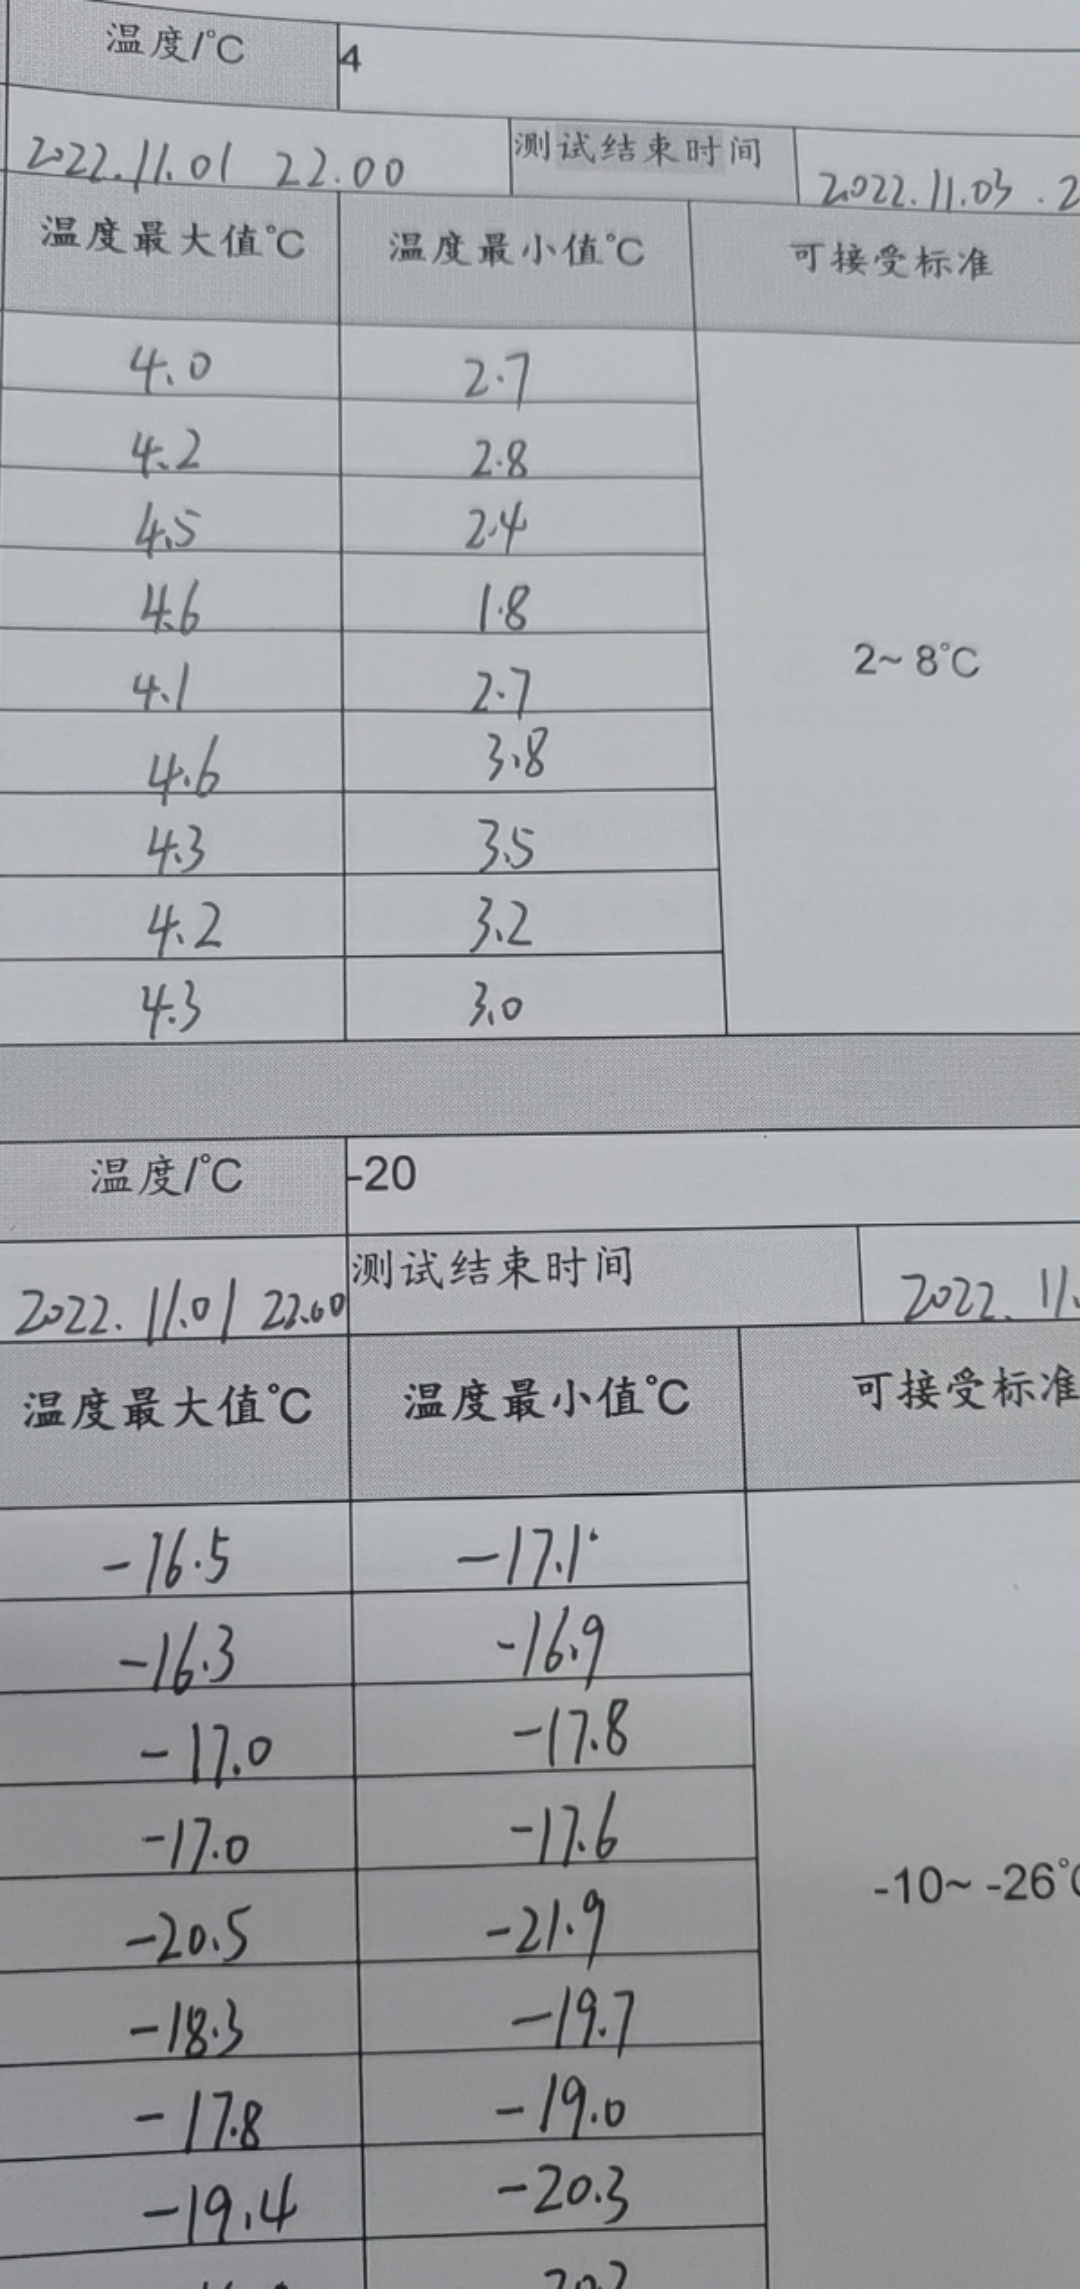 温度/°C 4
2022.11.01 22.00 测试结束时间 2022.11.03 . 2
温度最大值°C 温度最小值°C 可接受标准
4.0 2.7
4.2 2.8
4.5 2.4
4.6 1.8
2~ 8°C
4.1 2.7
4.6 3.8
4.3 3.5
4.2 3.2
4.3 3.0
温度/°C -20
2022.11.01 22.00 测试结束时间 2022. 11.
温度最大值°C 温度最小值°C 可接受标准
-16.5 -17.1
-16.3 -16.9
-17.0 -17.8
-17.0 -17.6
-10~ -26°C
-20.5 -21.9
-18.3 -19.7
-17.8 -19.0
-19.4 -20.3